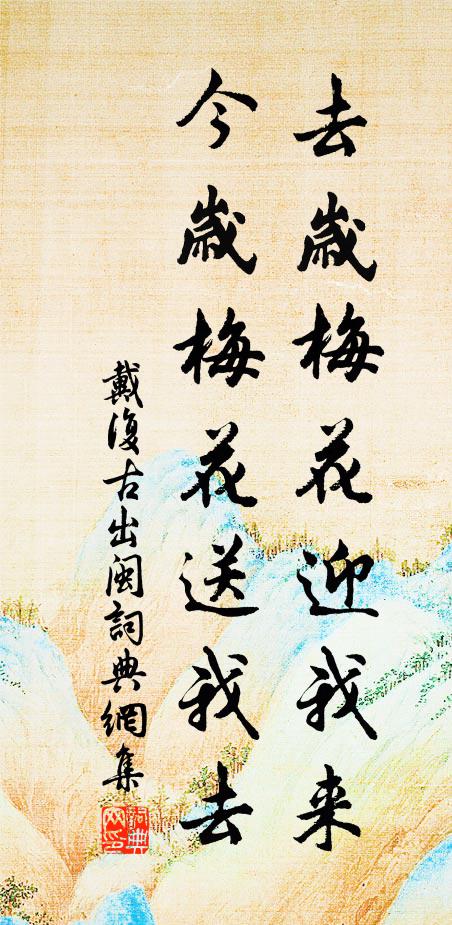 去歲梅花迎我来
今歲梅花送我去
戴復古出閩詞典網集
詞典
网印